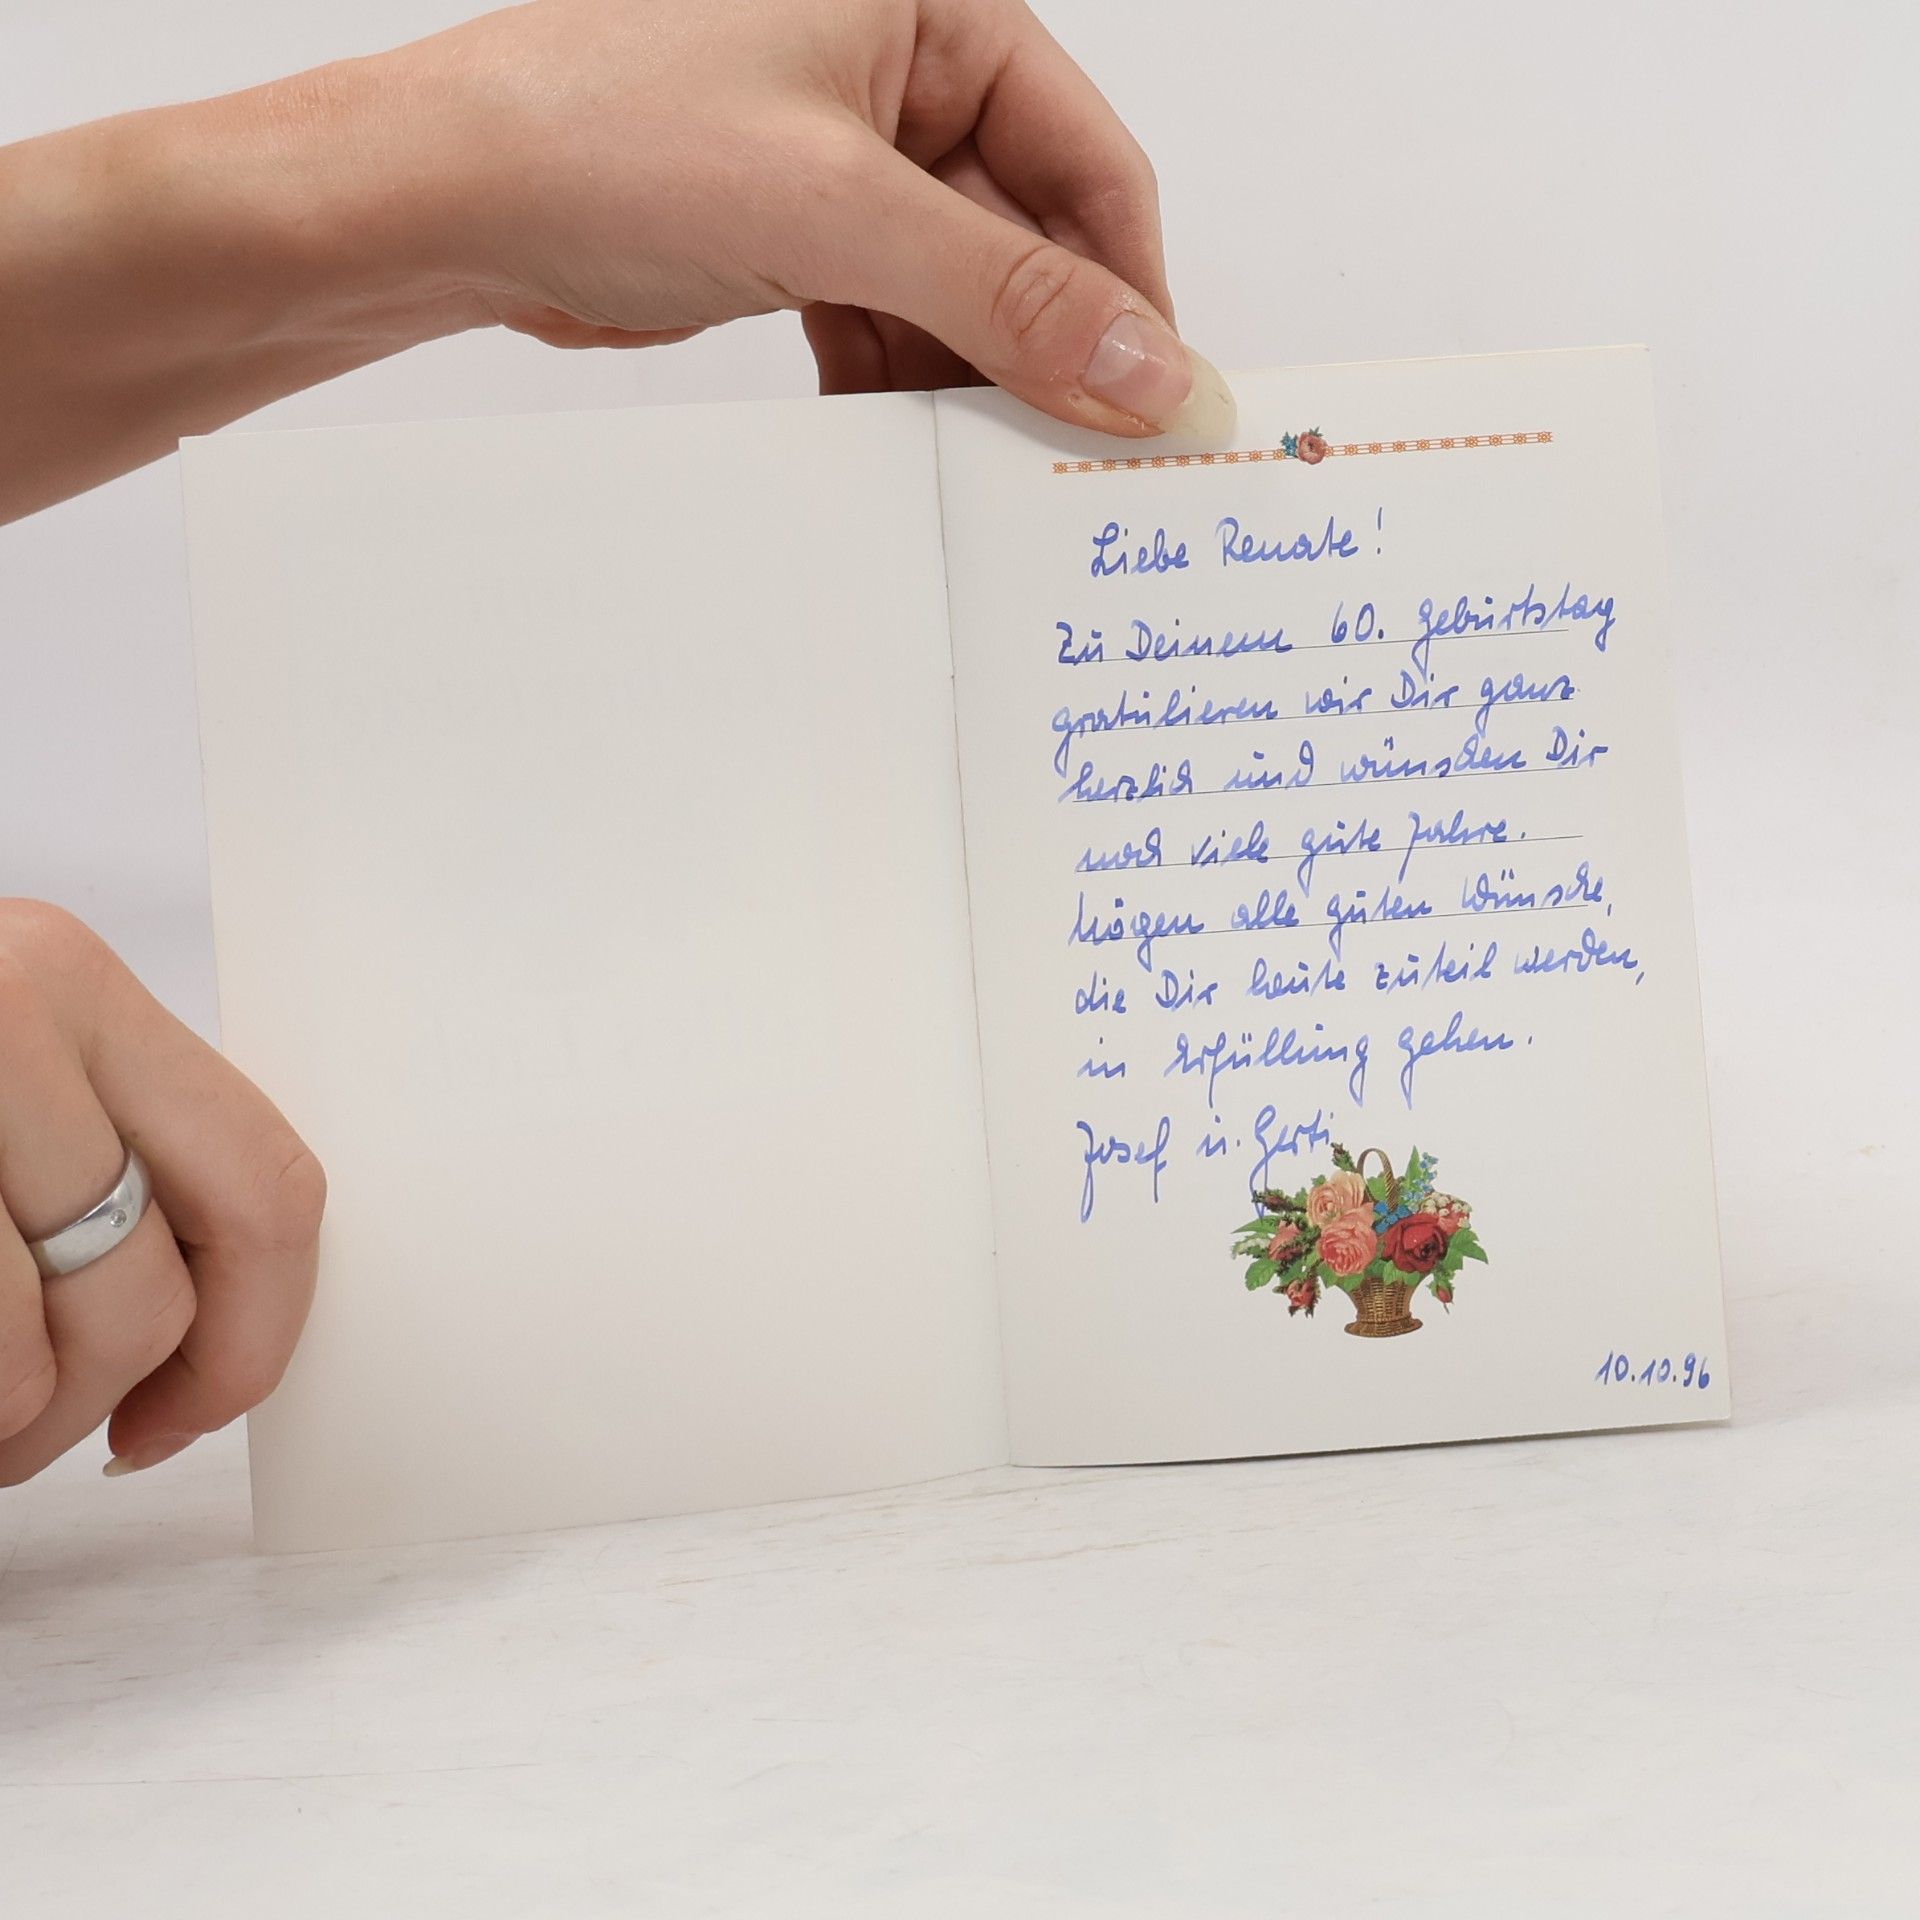 Liebe Renate!
Zu Deinem 60. Geburtstag
gratulieren wir Dir ganz
herzlich und wünschen Dir
noch viele gute Jahre.
Mögen alle guten Wünsche,
die Dir heute zuteil werden,
in Erfüllung gehen.
Josef u. Gerti
10.10.96